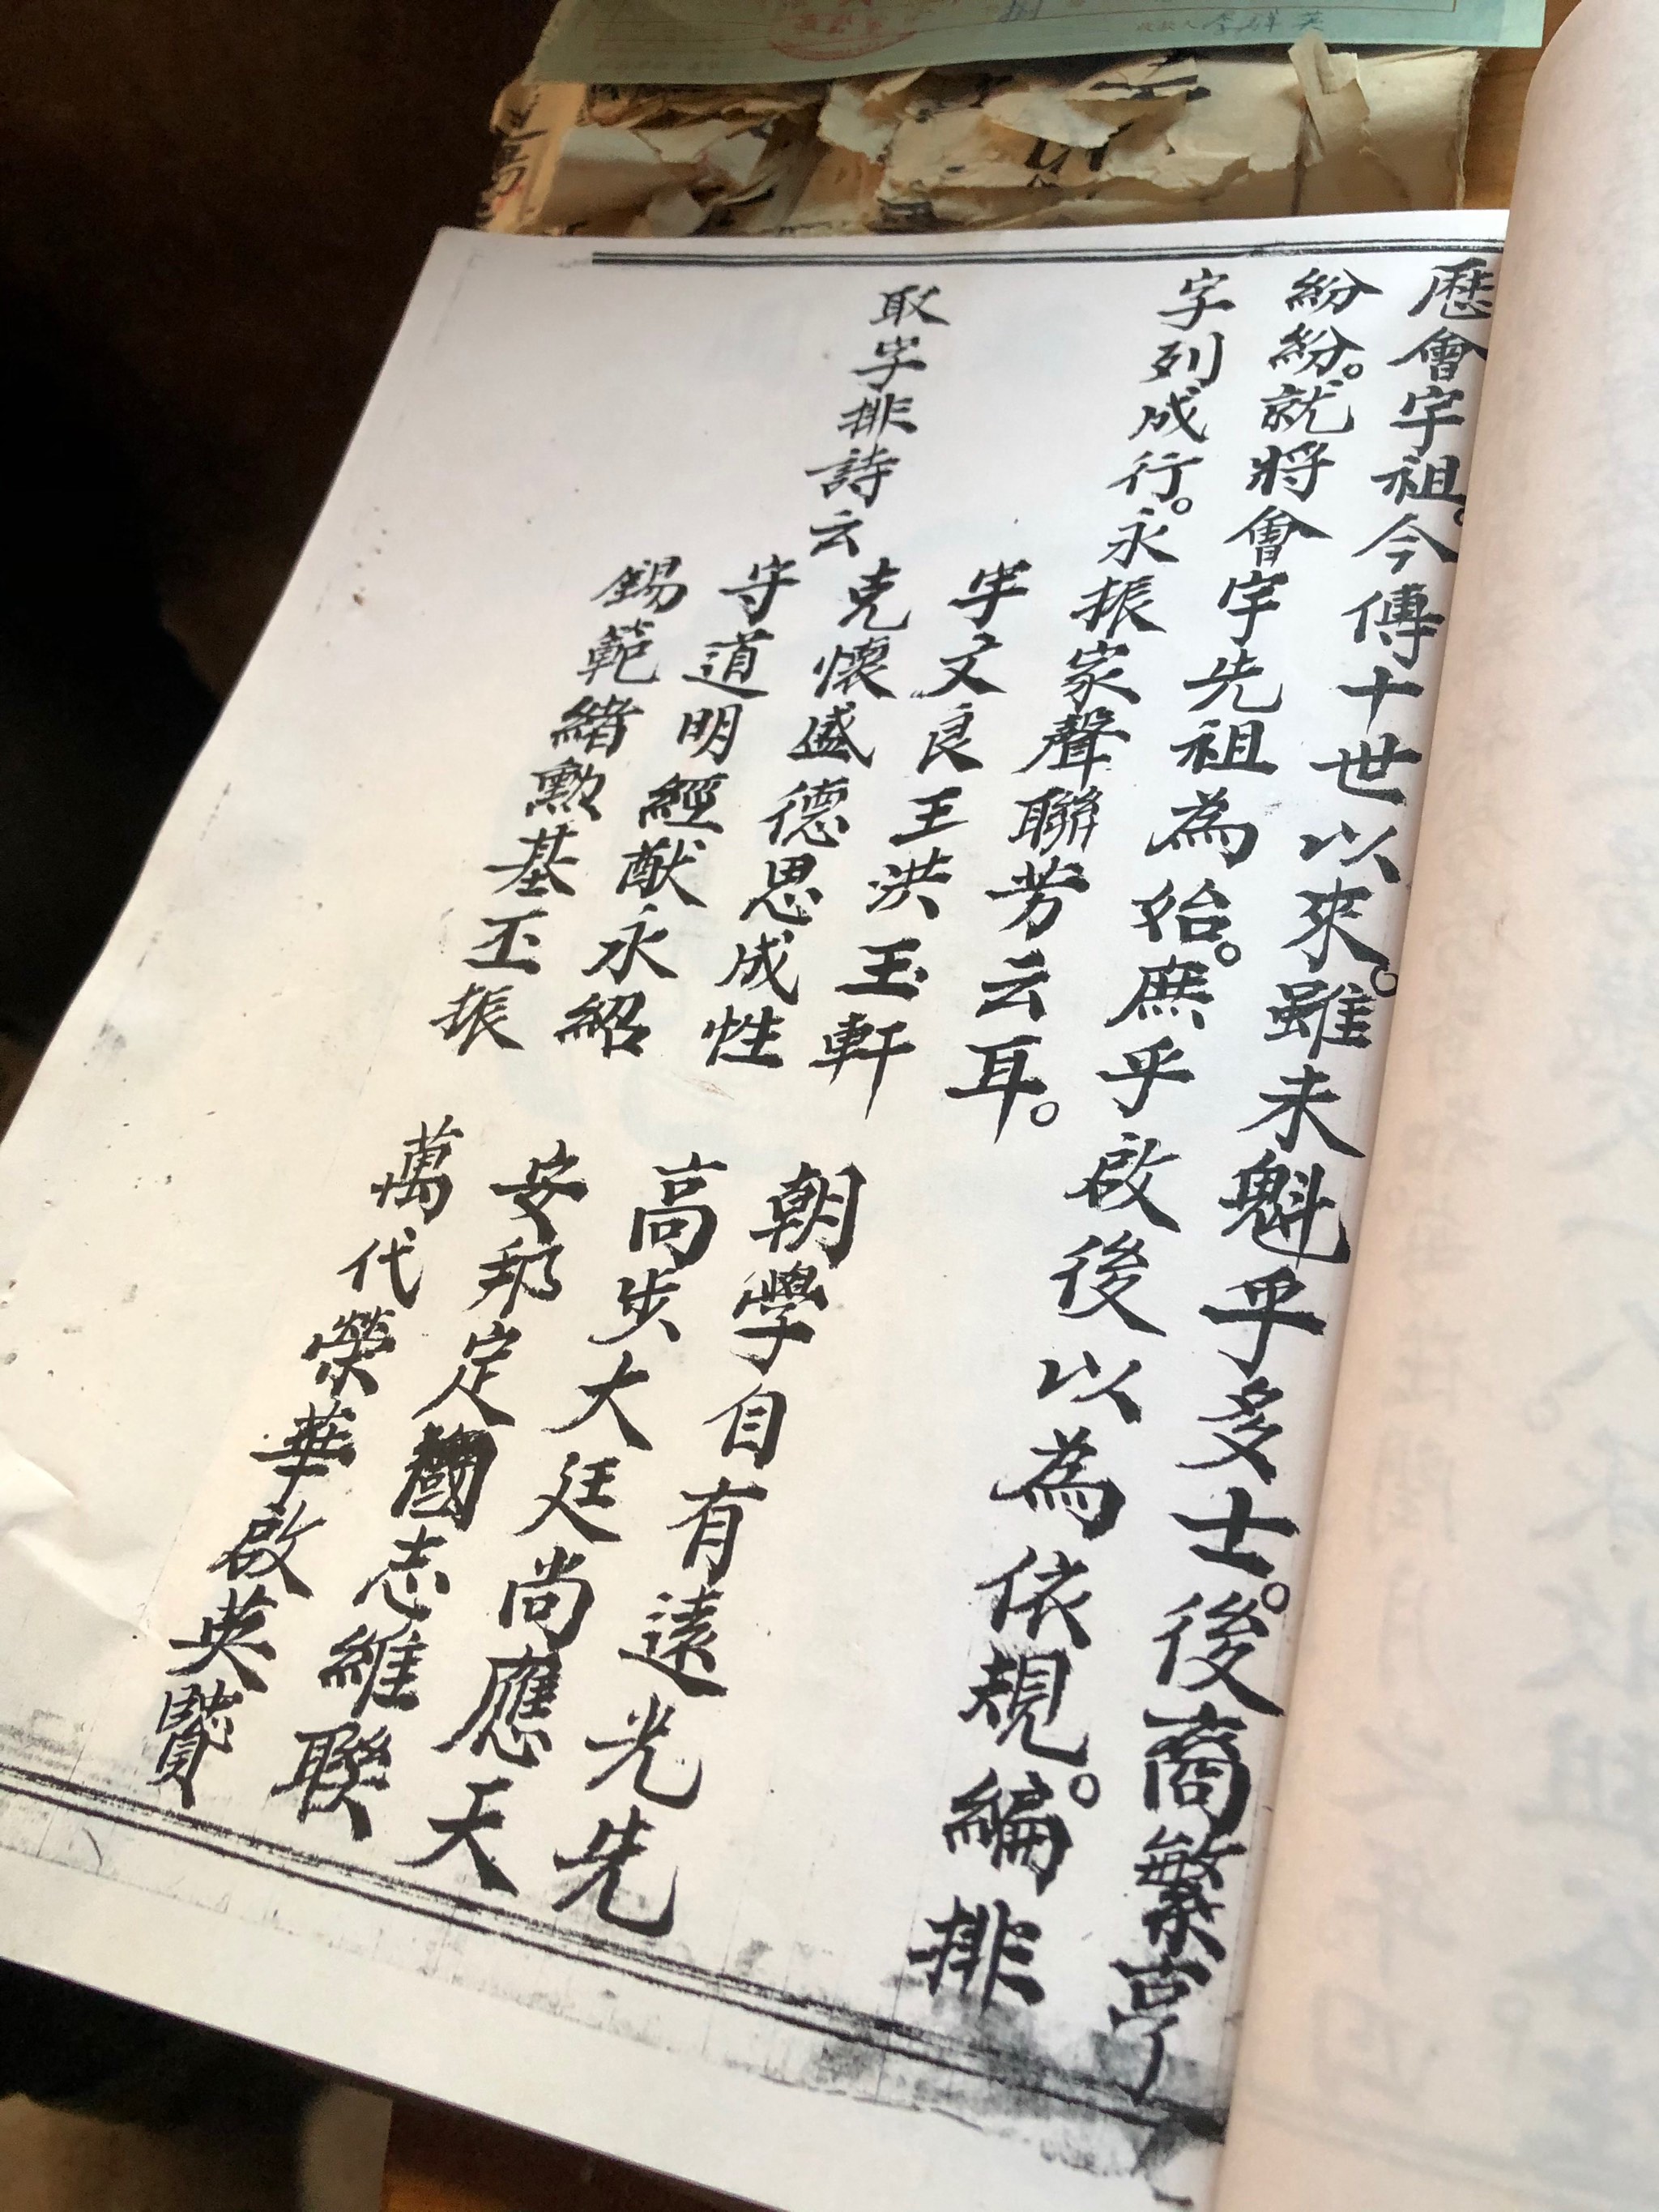 歷會宇祖。今傳十世以來。雖未魁乎多士。後裔繁亨
紛紛。就將會宇先祖為始。庶乎啟後以為依規。編排
字列成行。永振家聲聯芳云耳。
取字排詩云
宇文良王洪玉軒 朝學自有遠光先
克懷盛德思成性 高步大廷尚應天
守道明經猷永紹 安邦定國志維聯
錫範緒勲基丕振 萬代榮華啟英賢
收款人李祥英